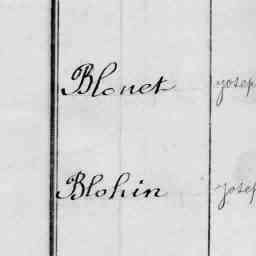 Blouet Josep
Blohin Josep